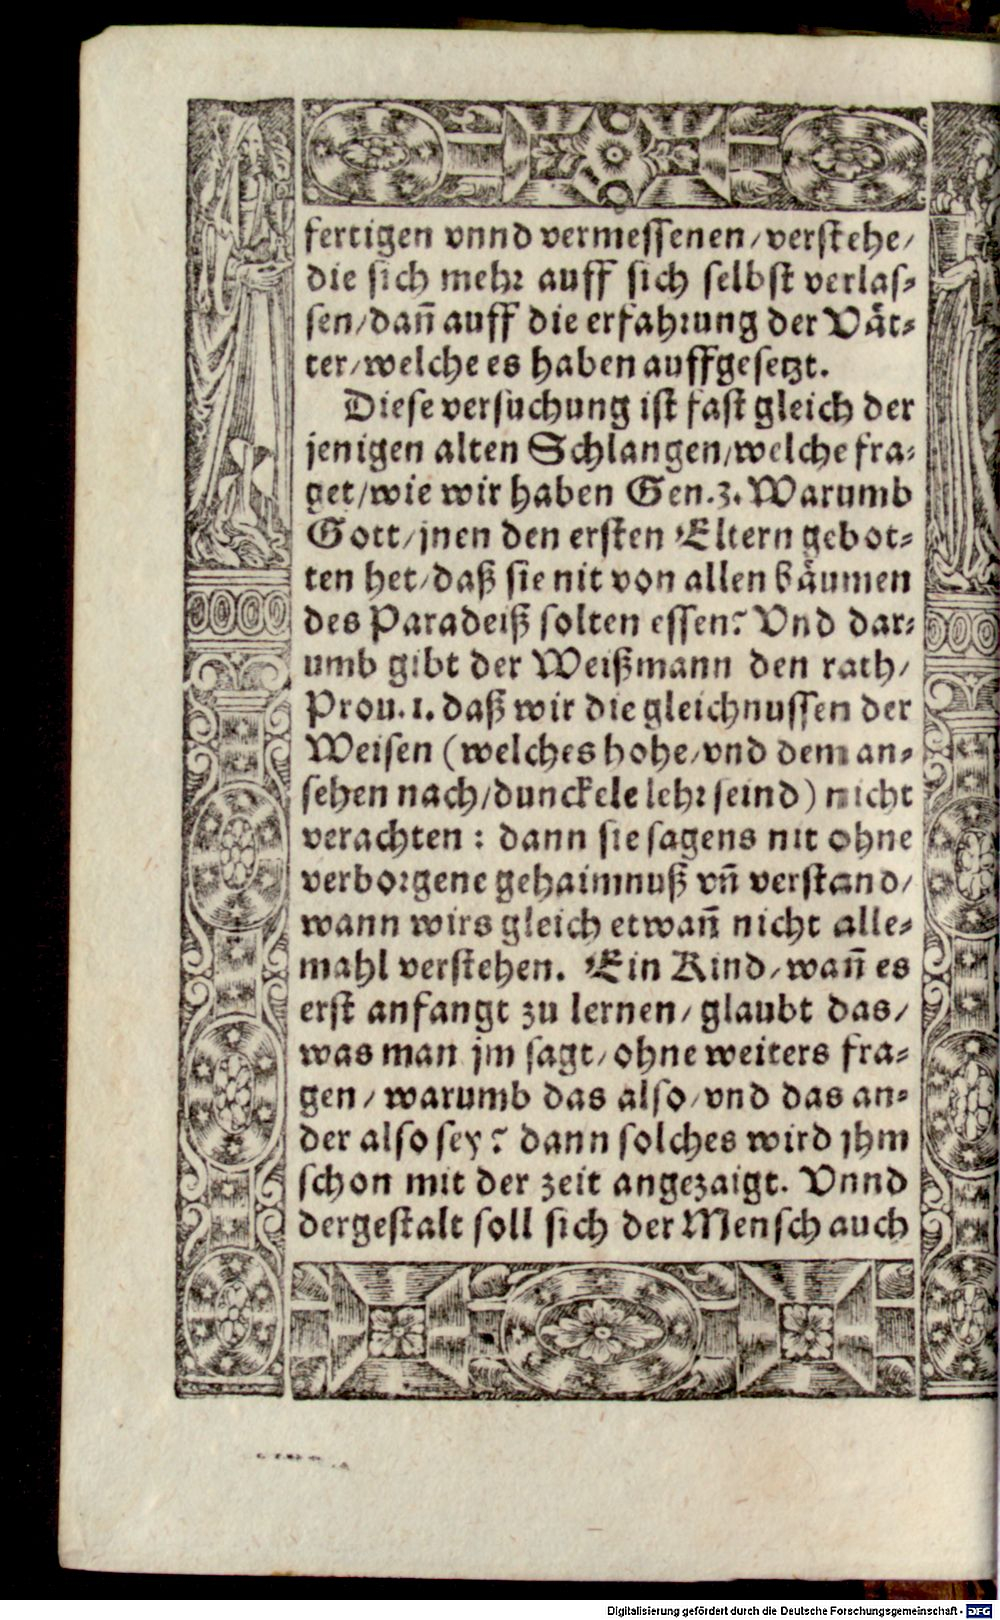 fertigen vnnd vermessenen/verstehe/
die sich mehr auff sich selbst verlas-
sen/dañ auff die erfahrung der Vät-
ter/welche es haben auffgesetzt.
Diese versuchung ist fast gleich der
jenigen alten Schlangen/welche fra-
get/wie wir haben Gen.3. Warumb
Gott/jnen den ersten Eltern gebot-
ten het/daß sie nit von allen bäumen
des Paradeiß solten essen? Vnd dar-
umb gibt der Weißmann den rath/
Prou.1. daß wir die gleichnussen der
Weisen (welches hohe/vnd dem an-
sehen nach/dunckele lehr seind) nicht
verachten: dann sie sagens nit ohne
verborgene gehaimnuß vñ verstand/
wann wirs gleich etwañ nicht alle-
mahl verstehen. Ein Kind/wañ es
erst anfangt zu lernen/glaubt das/
was man jm sagt/ohne weiters fra-
gen/warumb das also/vnd das an-
der also sey? dann solches wird jhm
schon mit der zeit angezaigt. Vnnd
dergestalt soll sich der Mensch auch
Digitalisierung gefördert durch die Deutsche Forschungsgemeinschaft - DFG